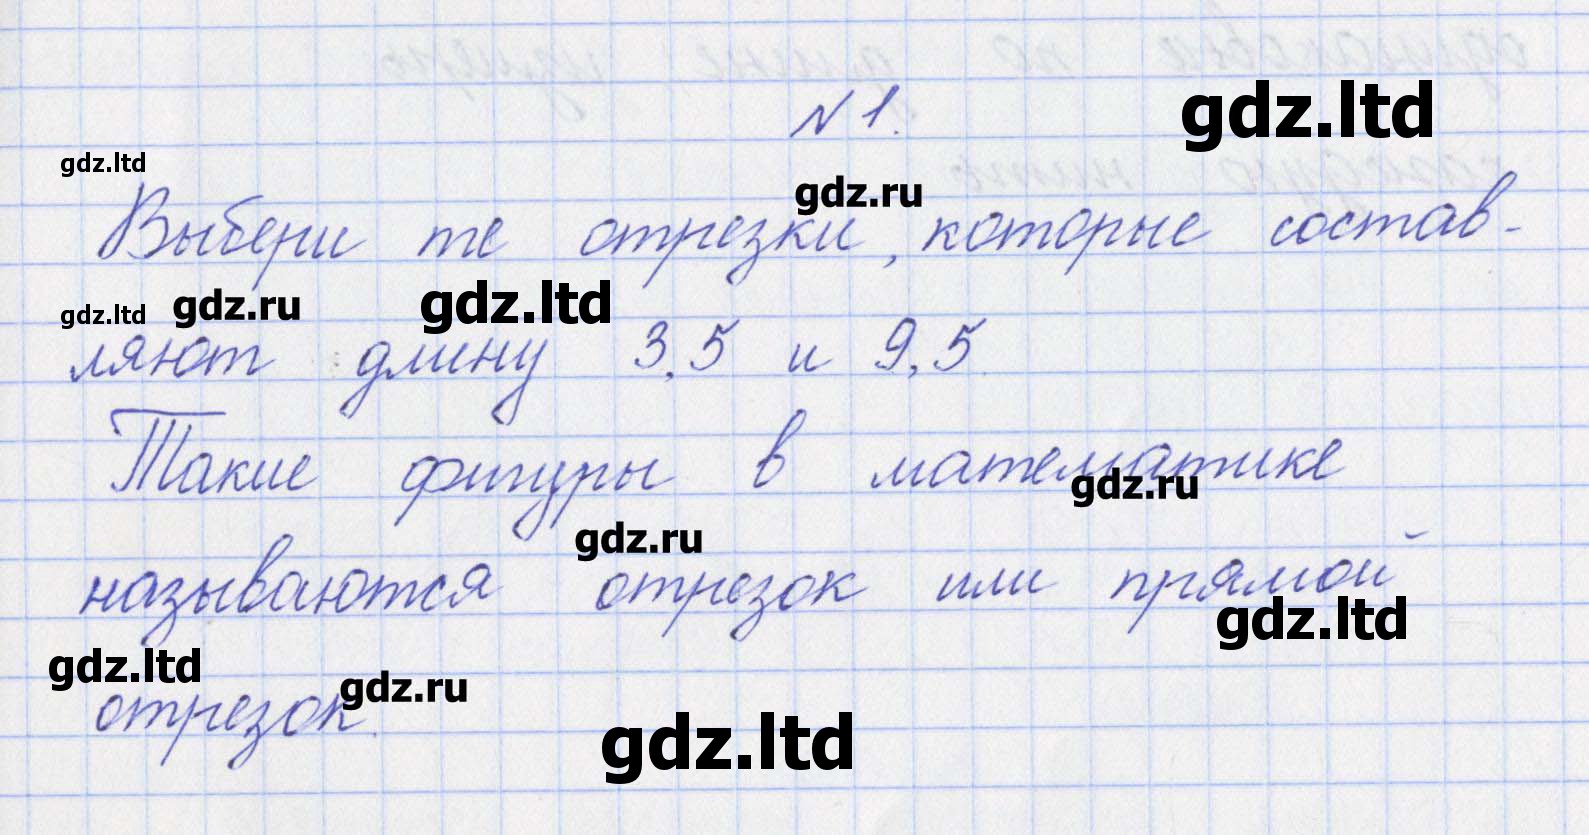 № 1.
gdz.ltd
gdz.ltd
gdz.ru
Выбери те отрезки, которые состав-
gdz.ltd
gdz.ru
gdz.ltd
ляют длину 3,5 и 9,5.
Такие фигуры в математике
gdz.ru
gdz.ru
называются отрезок или прямой
gdz.ltd
gdz.ltd
gdz.ru
отрезок.
gdz.ltd